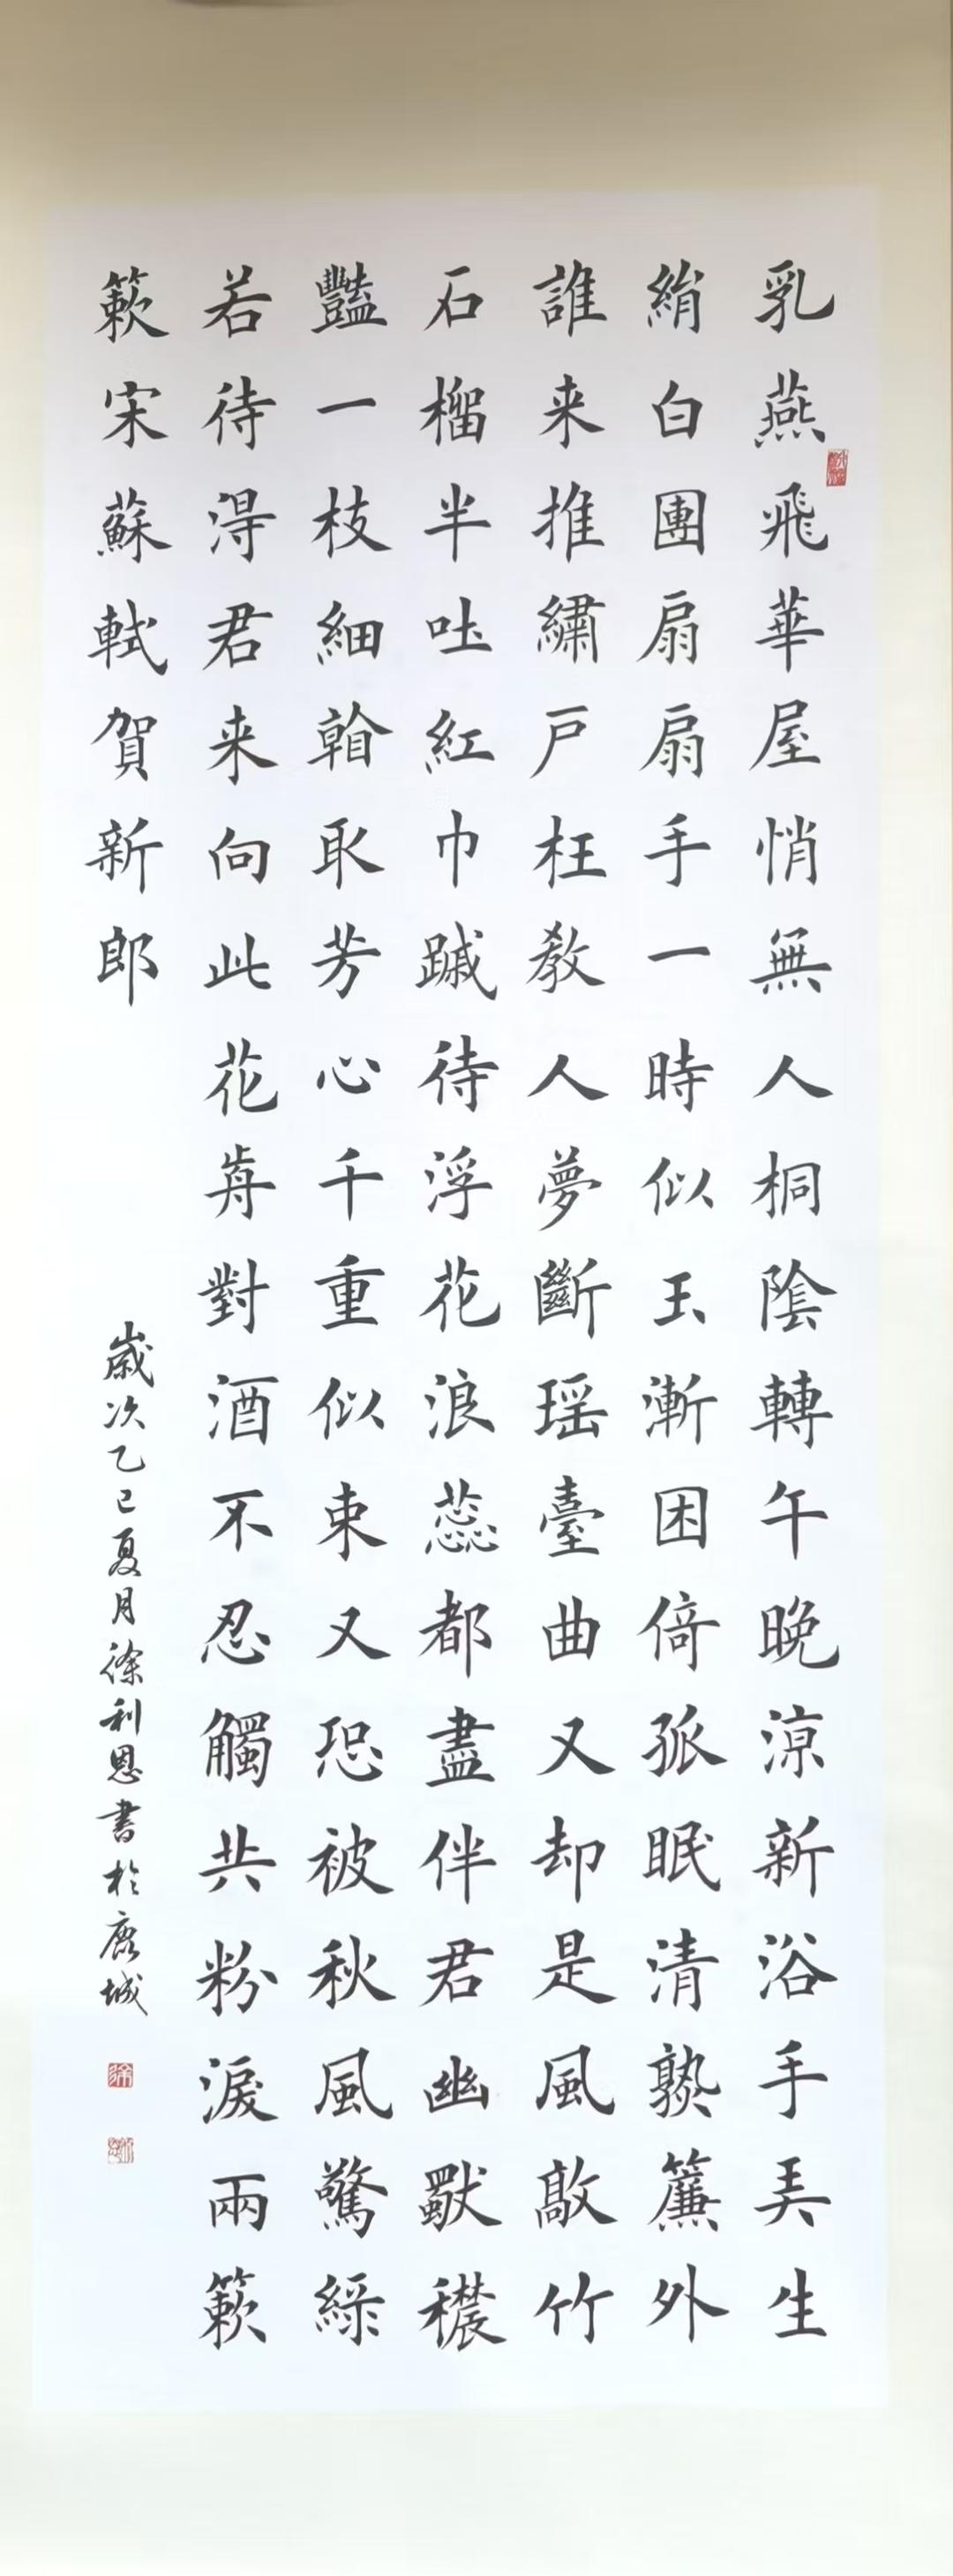 乳燕飛華屋悄無人桐陰轉午晚涼新浴手弄生
綃白團扇扇手一時似玉漸困倚孤眠清熟簾外
誰来推繡戶枉教人夢斷瑶臺曲又却是風敲竹
石榴半吐紅巾蹙待浮花浪蕊都盡伴君幽獸穠
豔一枝細翰取芳心千重似束又恐被秋風驚綠
若待得君来向此花歬對酒不忍觸共粉淚兩簌
簌宋蘇軾賀新郎
歲次乙巳夏月徐利恩書於鹿城